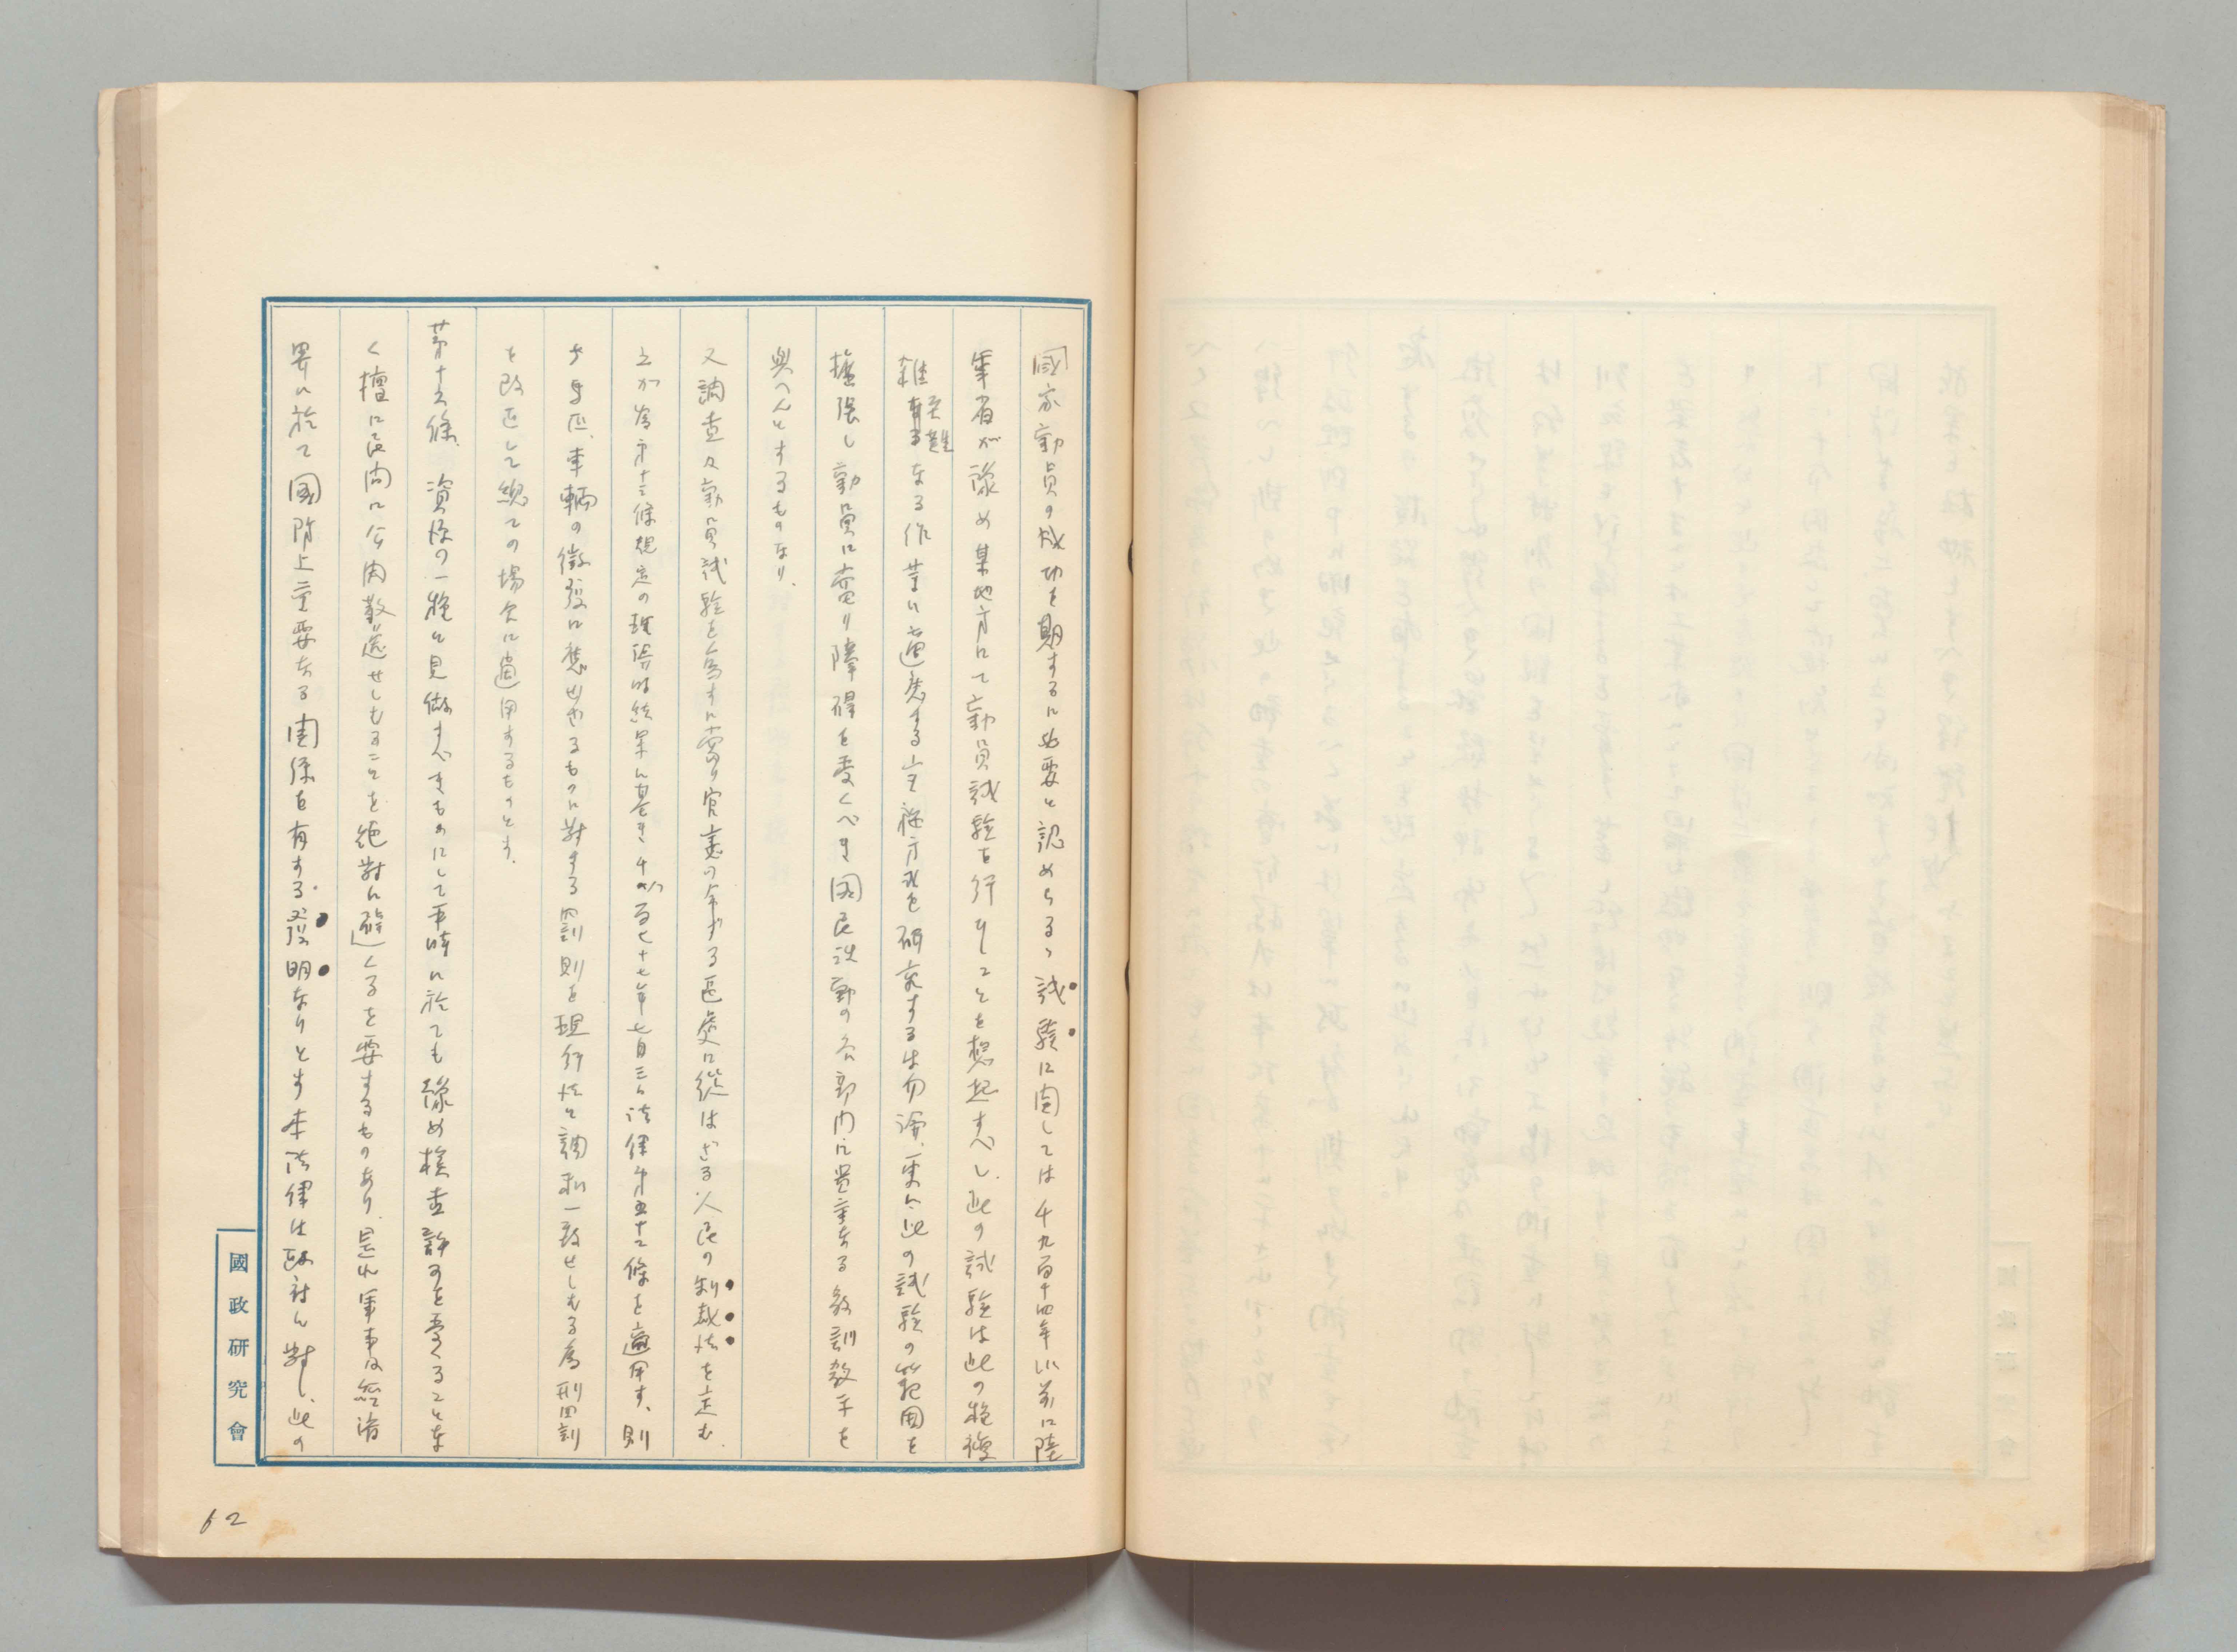 国家動員の成功を期するに必要と認めらるゝ試驗に関しては千九百十四年以前に陸
軍省が豫め某地方にて動員試驗を行ひしことを想起すべし、此の試驗は此の種複
雜なる作業に適應する主義方式を研究するは勿論、更に此の試驗の範囲を
擴張し動員に當り障碍を受くべき国民活動の各部内に貴重なる教訓数千を
與へんとするものなり、
又調査及動員試驗を為すに當り官憲の命ずる區處に從はざる人民の制裁法を定む、
之が為第十三條規定の理得は結果に基き千八百七十七年七月三日法律第五十二條を適用す、則
ち馬匹、車輌の徴發に應せざるものに対する罰則を現行法と調和一致せしむる為刑罰
を改正して總ての場合に適用するものとす、
第十六條、資源の一種と見做すべきものにして平時に於ても豫め検査許可を受くることな
く檀に民間に公開散逸せしむることを絶對に避くるを要するものあり、是れ軍事及經済
界に於て國防上重要なる関係を有する發明なりとす本法律は政府に對し、此の
國政研究會
62